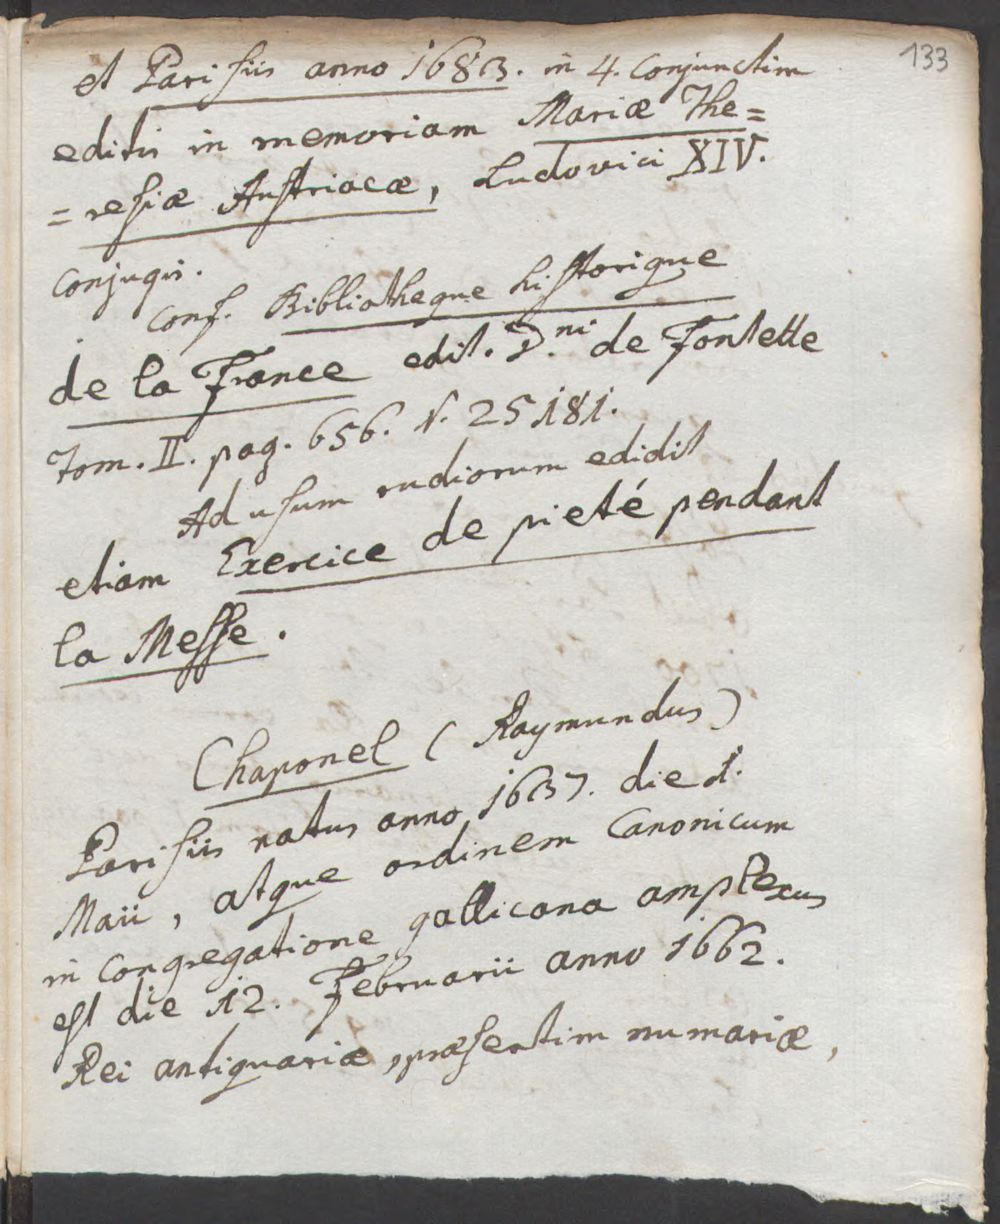 133
et Parisiis anno 1683. in 4. conjunctim
editis in memoriam Mariæ The=
=resiæ Austriacæ, Ludovici XIV.
conjugis.
Conf. Bibliotheque historique
de la France edit. D.ni de Fontette
Tom. II. pag. 656. N. 25181.
Ad usum rudiorum edidit
etiam Exercice de pieté pendant
la Messe.
Chaponel (Raymundus)
Parisiis natus anno 1637. die 1.
Maii, atque ordinem Canonicum
in Congregatione gallicana amplexus
est die 12. Februarii anno 1662.
Rei antiquariæ, præsertim numariæ,